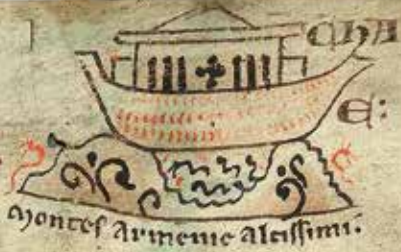 CHA
E:
Montes Armenie altissimi.